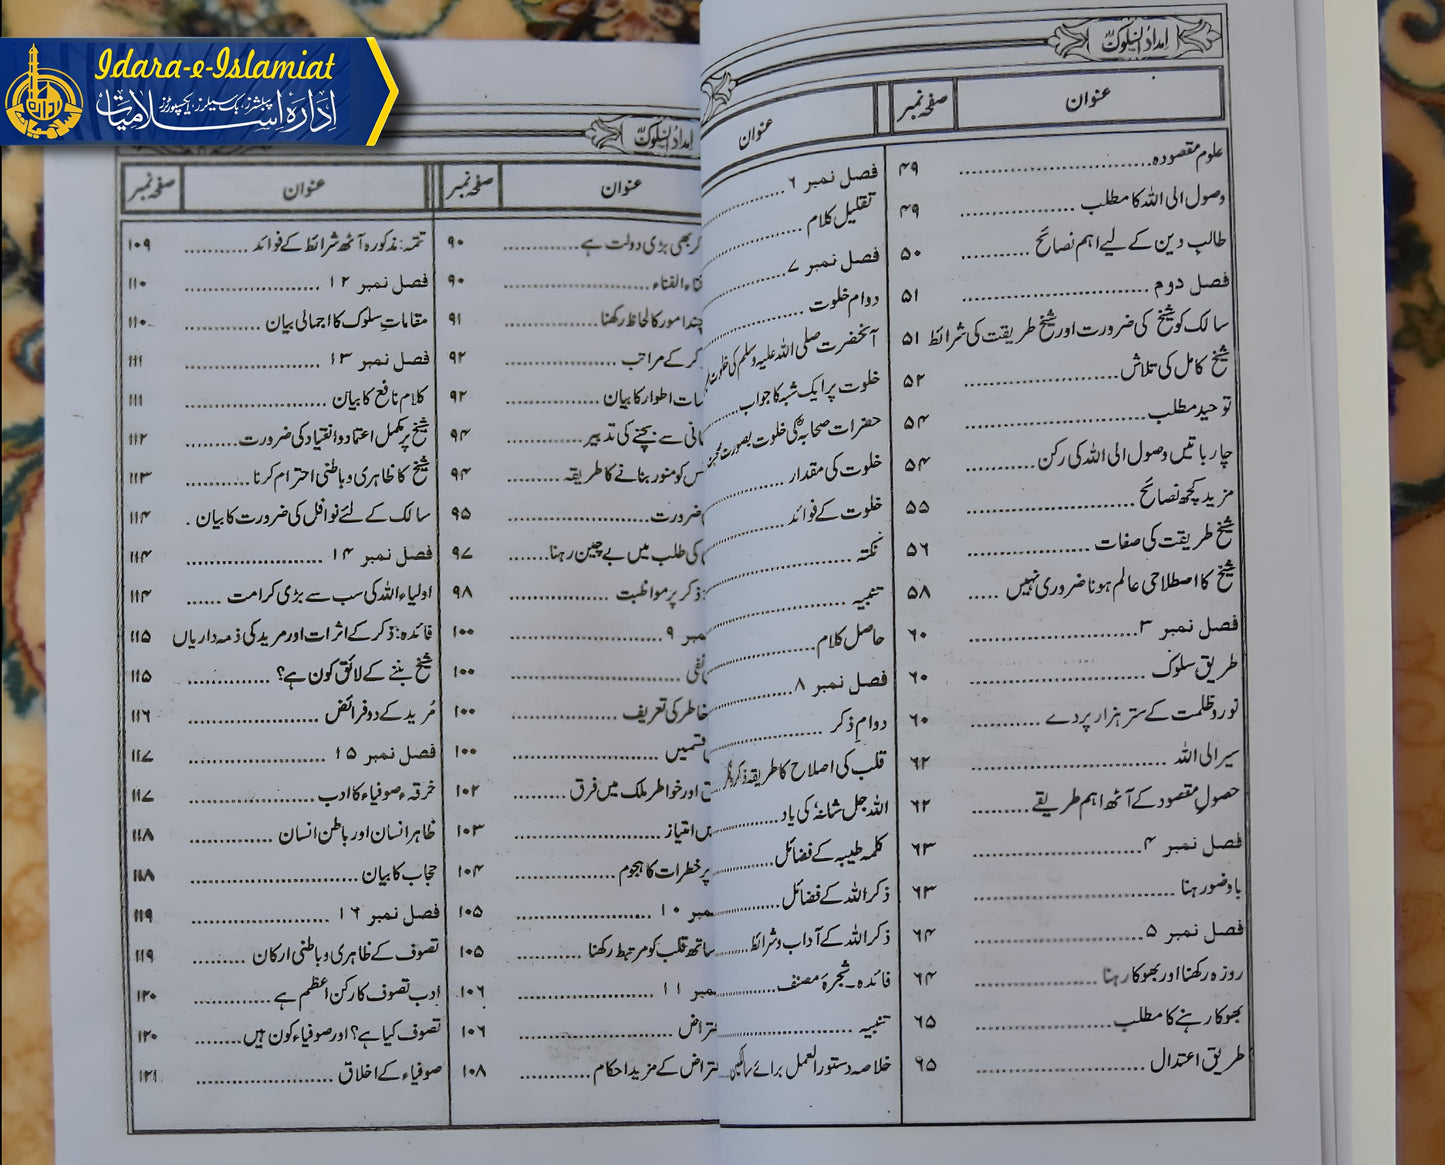 Idara-e-Islamiat
ادارہ اسلامیات پبلشرز، بک سیلرز، ایکسپورٹرز
امداد السلوک
عنوان صفحہ نمبر
علوم مقصودہ ۴۹
وصول الی اللہ کا مطلب ۴۹
طالبِ دین کے لیے اہم نصائح ۵۰
فصل دوم ۵۱
سالک کو شیخ کی ضرورت اور شیخ طریقت کی شرائط ۵۱
شیخ کامل کی تلاش ۵۲
توحید مطلب ۵۴
چار باتیں وصول الی اللہ کی رکن ۵۴
مزید کچھ نصائح ۵۵
شیخ طریقت کی صفات ۵۶
شیخ کا اصطلاحی عالم ہونا ضروری نہیں ۵۸
فصل نمبر ۳ ۶۰
طریق سلوک ۶۰
نور و ظلمت کے ستر ہزار پردے ۶۰
سیر الی اللہ ۶۲
حصولِ مقصود کے آٹھ اہم طریقے ۶۲
فصل نمبر ۴ ۶۳
باوضو رہنا ۶۳
فصل نمبر ۵ ۶۴
روزہ رکھنا اور بھوکا رہنا ۶۴
بھوکا رہنے کا مطلب ۶۵
طریق اعتدال ۶۵
عنوان
فصل نمبر ۶
تقلیل کلام
فصل نمبر ۷
دوام خلوت
آنحضرت صلی اللہ علیہ وسلم کی خلوت
خلوت پر ایک شبہ کا جواب
حضرات صحابہؓ کی خلوت بصورت
خلوت کی مقدار
خلوت کے فوائد
نکتہ
تنبیہ
حاصل کلام
فصل نمبر ۸
دوامِ ذکر
قلب کی اصلاح کا طریقہ ذکر
اللہ جل شانہٗ کی یاد
کلمہ طیبہ کے فضائل
ذکر اللہ کے فضائل
ذکر اللہ کے آداب و شرائط
فائدہ۔ شجرۂ مصنف
تنبیہ
خلاصہ دستور العمل برائے سالکین
امداد السلوک
عنوان صفحہ نمبر
کر بھی بڑی دولت ہے ۹۰
فناء الفناء ۹۰
چند امور کا لحاظ رکھنا ۹۱
کر کے مراتب ۹۲
سات اطوار کا بیان ۹۲
سے بچنے کی تدبیر ۹۴
کو منور بنانے کا طریقہ ۹۴
ضرورت ۹۵
کی طلب میں بے چین رہنا ۹۷
ذکر پر مواظبت ۹۸
نمبر ۹ ۱۰۰
نفی ۱۰۰
خاطر کی تعریف ۱۰۰
قسمیں ۱۰۰
اور خواطر ملک میں فرق ۱۰۲
میں امتیاز ۱۰۳
پر خطرات کا ہجوم ۱۰۴
نمبر ۱۰ ۱۰۵
ساتھ قلب کو مرتبط رکھنا ۱۰۵
نمبر ۱۱ ۱۰۶
اعتراض ۱۰۶
اعتراض کے مزید احکام ۱۰۸
عنوان صفحہ نمبر
تتمہ: مذکورہ آٹھ شرائط کے فوائد ۱۰۹
فصل نمبر ۱۲ ۱۱۰
مقاماتِ سلوک کا اجمالی بیان ۱۱۰
فصل نمبر ۱۳ ۱۱۱
کلام نافع کا بیان ۱۱۱
شیخ پر مکمل اعتماد و انقیاد کی ضرورت ۱۱۲
شیخ کا ظاہری و باطنی احترام کرنا ۱۱۳
سالک کے لئے نوافل کی ضرورت کا بیان ۱۱۴
فصل نمبر ۱۴ ۱۱۴
اولیاء اللہ کی سب سے بڑی کرامت ۱۱۴
فائدہ: ذکر کے اثرات اور مرید کی ذمہ داریاں ۱۱۵
شیخ بننے کے لائق کون ہے؟ ۱۱۵
مُرید کے دو فرائض ۱۱۶
فصل نمبر ۱۵ ۱۱۷
خرقہء صوفیاء کا ادب ۱۱۷
ظاہر انسان اور باطن انسان ۱۱۸
حجاب کا بیان ۱۱۸
فصل نمبر ۱۶ ۱۱۹
تصوف کے ظاہری و باطنی ارکان ۱۱۹
ادب تصوف کا رکن اعظم ہے ۱۲۰
تصوف کیا ہے؟ اور صوفیاء کون ہیں ۱۲۰
صوفیاء کے اخلاق ۱۲۱